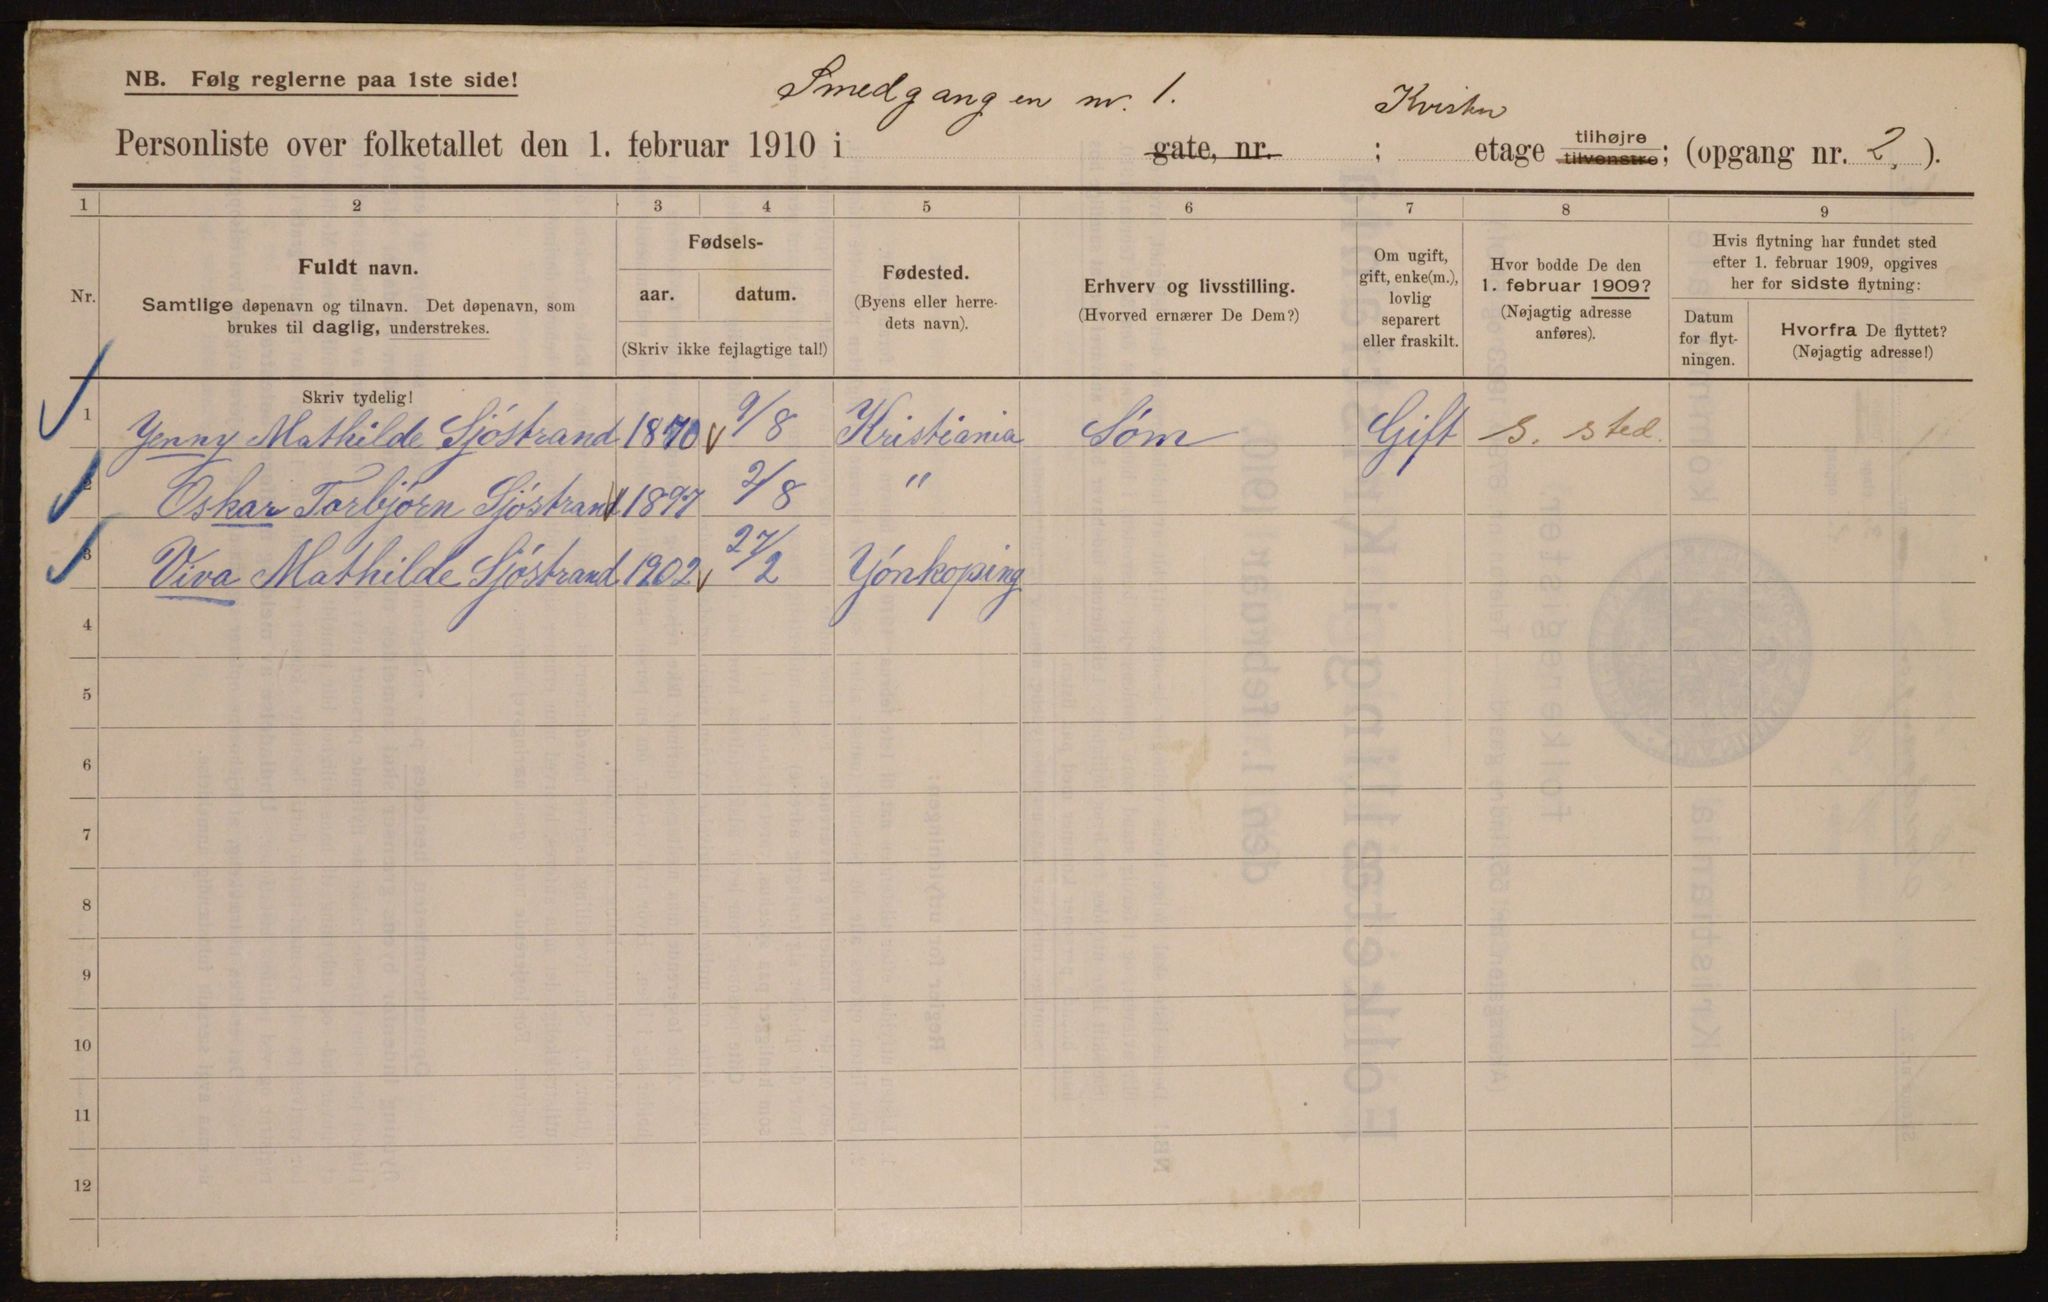 NB. Følg reglerne paa 1ste side!
Smedgangen nr. 1.
Kvisten
Personliste over folketallet den 1. februar 1910 i gate, nr. ; etage tilhøjre tilvenstre; (opgang nr. 2.).
1 2 3 4 5 6 7 8 9
Nr.
Fuldt navn.
Samtlige døpenavn og tilnavn. Det døpenavn, som
brukes til daglig, understrekes.
Fødsels-
aar. datum.
(Skriv ikke fejlagtige tal!)
Fødested.
(Byens eller herre-
dets navn).
Erhverv og livsstilling.
(Hvorved ernærer De Dem?)
Om ugift,
gift, enke(m.),
lovlig
separert
eller fraskilt.
Hvor bodde De den
1. februar 1909?
(Nøjagtig adresse
anføres).
Hvis flytning har fundet sted
efter 1. februar 1909, opgives
her for sidste flytning:
Datum
for flyt-
ningen.
Hvorfra De flyttet?
(Nøjagtig adresse!)
Skriv tydelig!
1 Yenny Mathilde Sjöstrand 1870 9/8 Kristiania Søm Gift s. sted.
2 Oskar Torbjørn Sjöstrand 1897 2/8 "
3 Viva Mathilde Sjöstrand 1902 27/2 Yönkoping
4
5
6
7
8
9
10
11
12